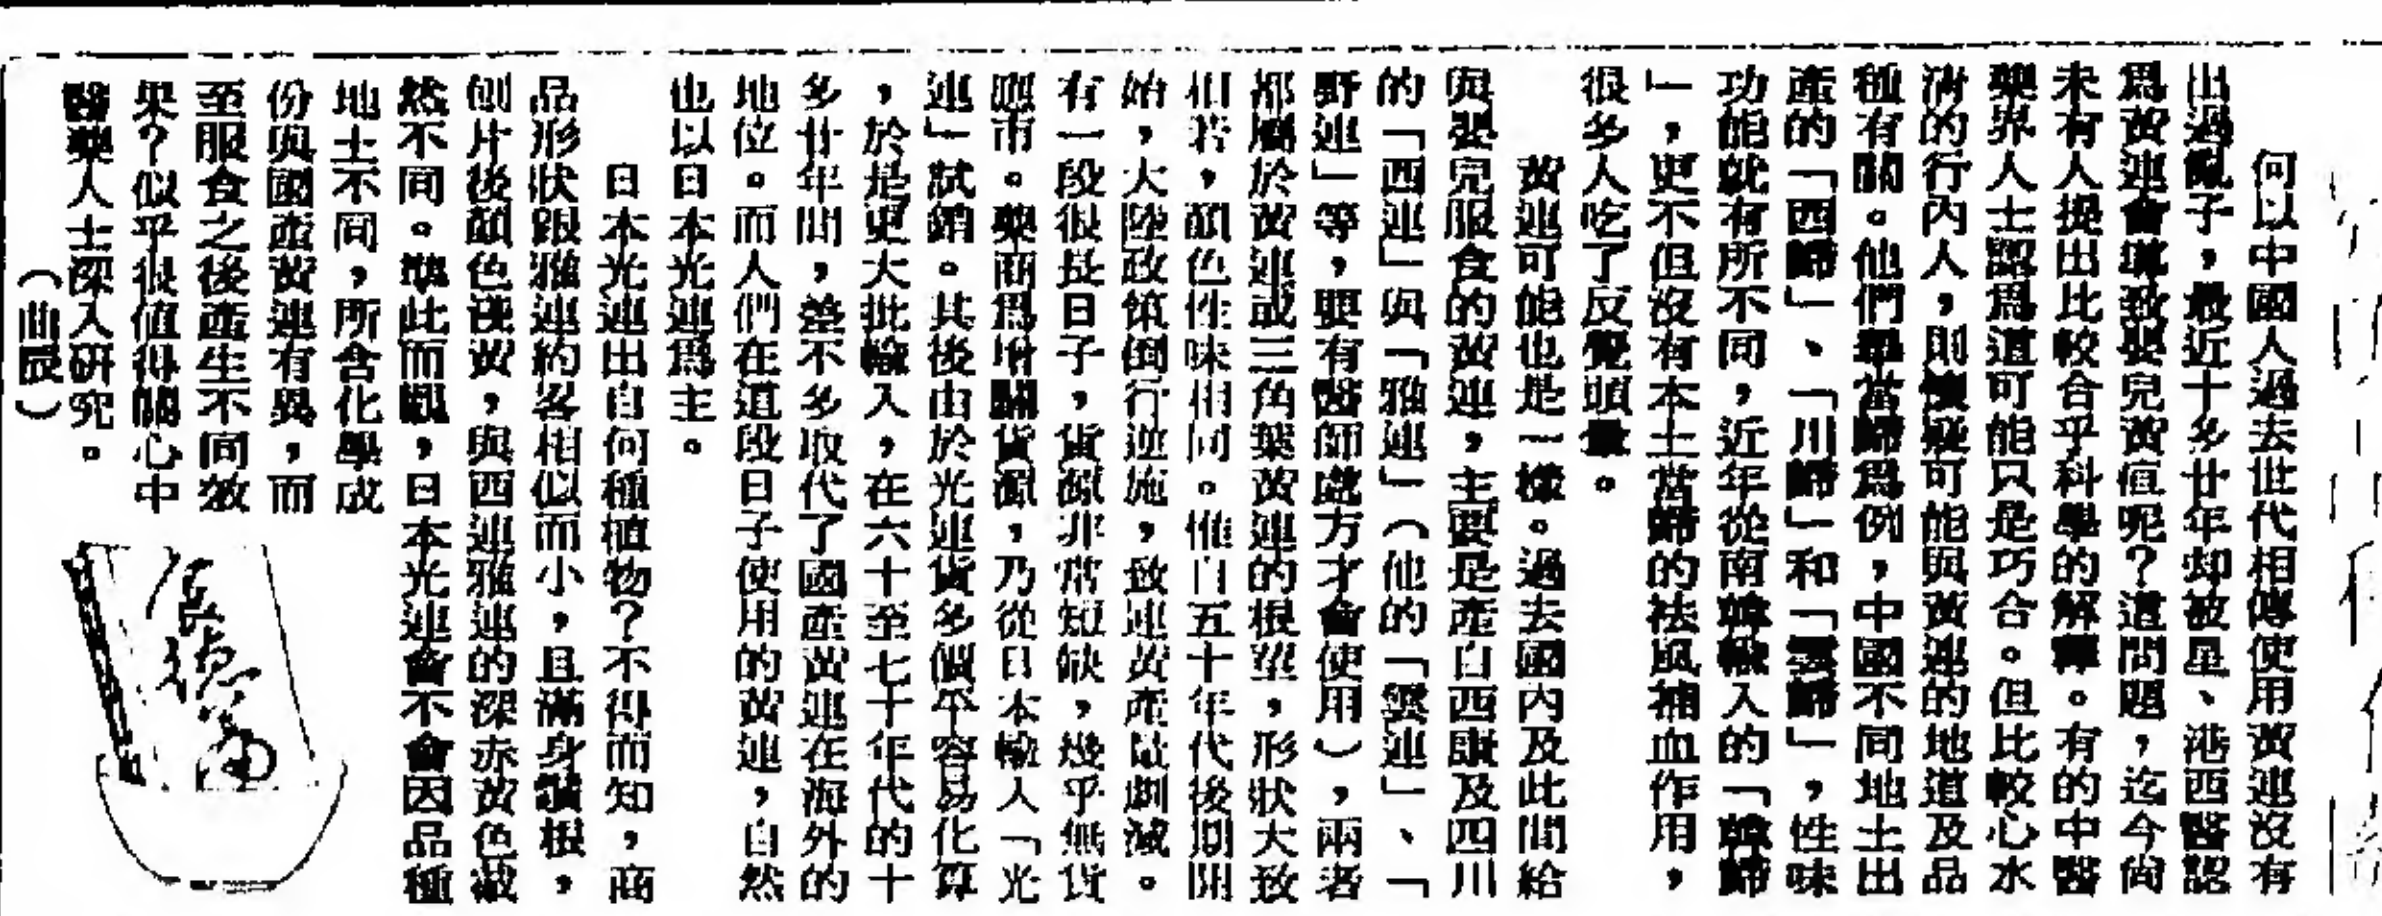 何以中國人過去世代相傳使用黃連沒有
出過亂子，最近十多廿年却被星、港西醫認
爲黃連會導致嬰兒黃疸呢？這問題，迄今尙
未有人提出比較合乎科學的解釋。有的中醫
藥界人士認爲這可能只是巧合。但比較心水
淸的行內人，則懷疑可能與黃連的地道及品
種有關。他們舉當歸爲例，中國不同地土出
產的「西歸」、「川歸」和「雲歸」，性味
功能就有所不同，近年從南韓輸入的「韓歸
」，更不但沒有本土當歸的祛風補血作用，
很多人吃了反覺頭暈。
黃連可能也是一樣。過去國內及此間給
與嬰兒服食的黃連，主要是產自西康及四川
的「西連」與「雅連」（他的「雲連」、「
野連」等，要有醫師處方才會使用），兩者
都屬於黃連或三角葉黃連的根莖，形狀大致
相若，顏色性味相同。惟自五十年代後期開
始，大陸政策倒行逆施，致連黃產量劇減。
有一段很長日子，貨源非常短缺，幾乎無貨
應市。藥商爲增闢貨源，乃從日本輸入「光
連」試銷。其後由於光連貨多價平容易化算
，於是更大批輸入，在六十至七十年代的十
多廿年間，差不多取代了國產黃連在海外的
地位。而人們在這段日子使用的黃連，自然
也以日本光連爲主。
日本光連出自何種植物？不得而知，商
品形狀跟雅連約畧相似而小，且滿身鬚根，
刨片後顏色淺黃，與西連雅連的深赤黃色截
然不同。準此而觀，日本光連會不會因品種
地土不同，所含化學成
份與國產黃連有異，而
至服食之後產生不同效
果？似乎很值得關心中
醫藥人士深入研究。
（曲辰）